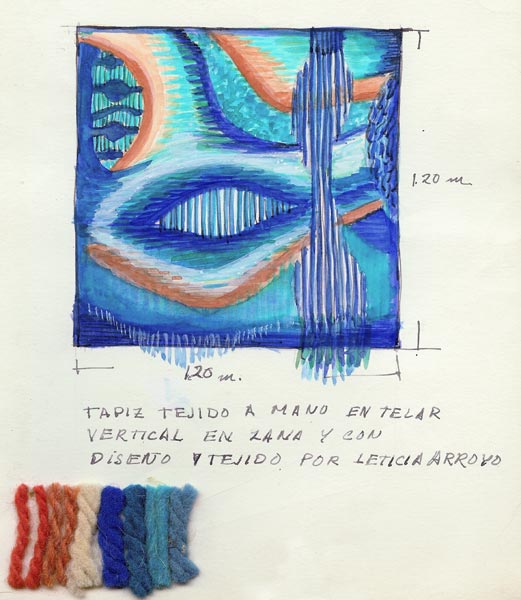 1.20 m.
1.20 m.
TAPIZ TEJIDO A MANO EN TELAR
VERTICAL EN LANA Y CON
DISEÑO Y TEJIDO POR LETICIA ARROYO